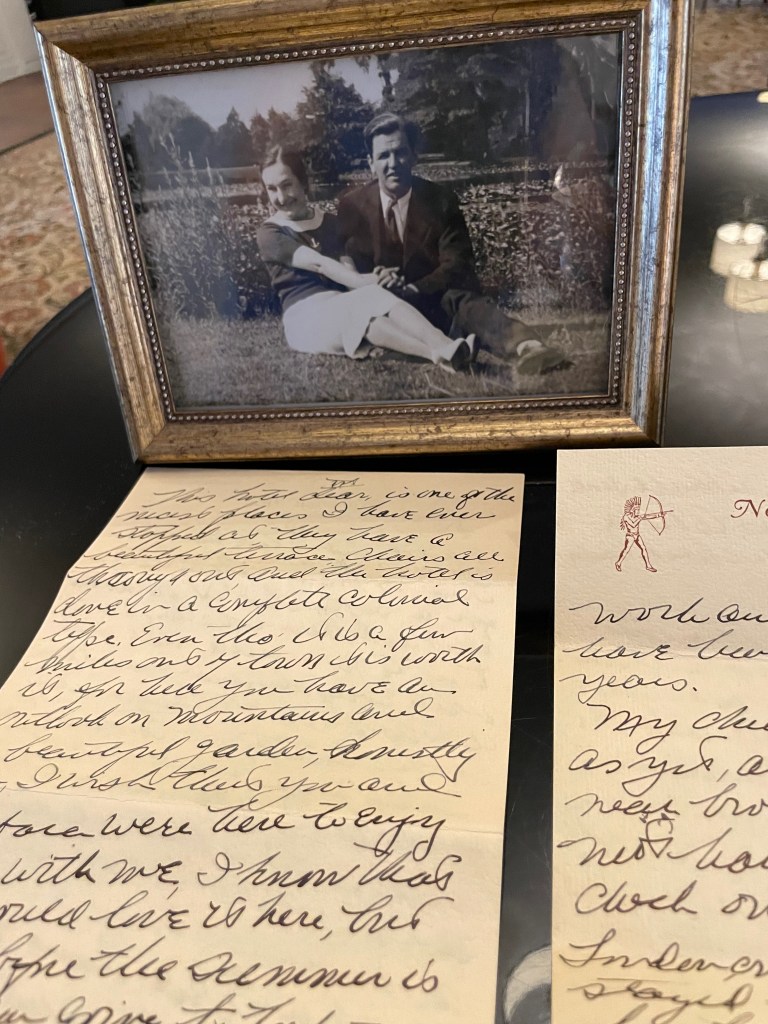 III
This hotel dear, is one of the
nicest places I have ever
stopped at they have a
beautiful terrace chairs all
through out and the hotel is
done in a complete colonial
type. Even tho it is a few
miles out of town it is worth
it, for here you have an
outlook on mountains and
beautiful garden, honestly
I wish that you and
were here to enjoy
with me, I know that
ould love it here, but
the summer is
going to
No
work an
have bee
years.
My che
as yet, a
near bro
not ha
check on
London
stayed